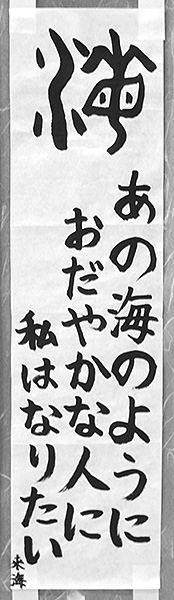 海
あの海のように
おだやかな人に
私はなりたい
来海